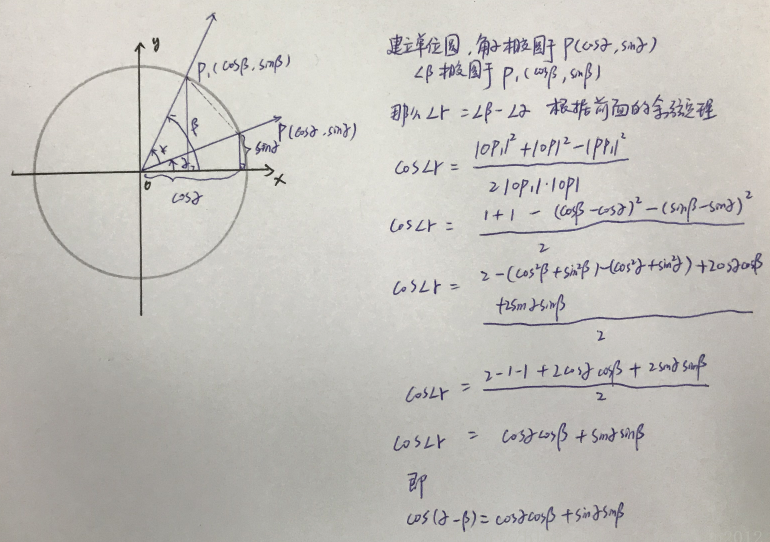 y
P₁(cosβ, sinβ)
β
P(cosα, sinα)
r
α
sinα
0
x
cosα
建立单位圆,角α相交圆于P(cosα, sinα)
∠β相交圆于P₁(cosβ, sinβ)
那么∠r = ∠β-∠α 根据前面的余弦定理
cos∠r = (|OP₁|² + |OP|² - |PP₁|²) / (2|OP₁|·|OP|)
cos∠r = (1+1 - (cosβ-cosα)² - (sinβ-sinα)²) / 2
cos∠r = (2-(cos²β+sin²β)-(cos²α+sin²α)+2cosαcosβ
+2sinαsinβ) / 2
cos∠r = (2-1-1+2cosαcosβ+2sinαsinβ) / 2
cos∠r = cosαcosβ+sinαsinβ
即
cos(α-β)=cosαcosβ+sinαsinβ